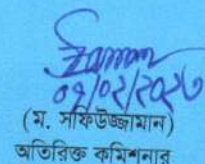 ০৭/০২/২০২৩
(ম. সফিউজ্জামান)
অতিরিক্ত কমিশনার